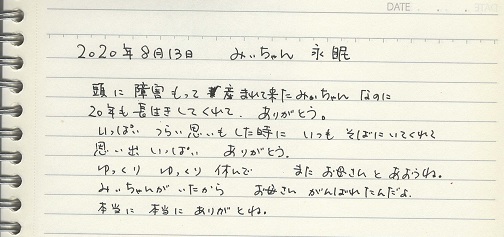 DATE
2020年8月13日 みぃちゃん 永眠
頭に障害もって産まれて来たみぃちゃんなのに
20年も長生きしてくれて、ありがとう。
いっぱい つらい思いもした時に いつも そばにいてくれて
思い出いっぱい ありがとう。
ゆっくり ゆっくり 休んで またお母さんとあおうね。
みぃちゃんがいたから お母さん がんばれたんだよ。
本当に 本当に ありがとね。